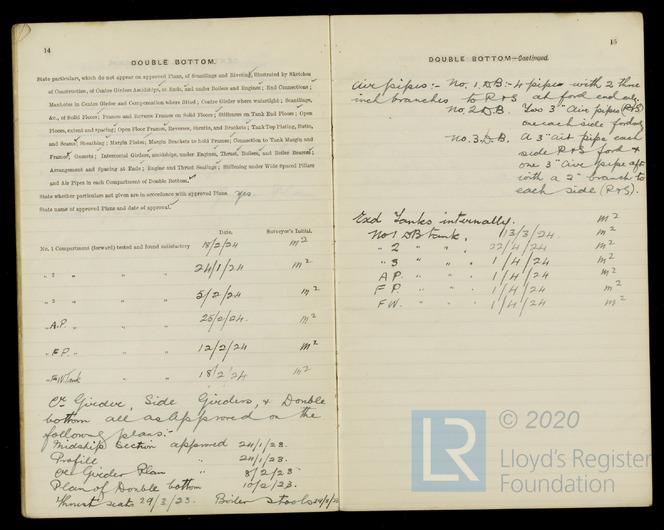 14
DOUBLE BOTTOM.
State particulars, which do not appear on approved Plans, of Scantlings and Riveting, illustrated by Sketches
of Construction, of Centre Girders Amidships, at Ends, and under Boilers and Engines; End Connections;
Manholes in Centre Girder and Compensation where fitted; Centre Girder where watertight; Scantlings,
&c., of Solid Floors; Frames and Reverse Frames on Solid Floors; Stiffeners on Tank End Floors; Open
Floors, extent and spacing; Open Floor Frames, Reverses, Struts, and Brackets; Tank Top Plating, Butts,
and Seams; Sheathing; Margin Plates; Margin Brackets to hold Frames; Connection to Tank Margin and
Frames; Gussets; Intercostal Girders, amidships, under Engines, Thrust, Boilers, and Boiler Bearers;
Arrangement and Spacing at Ends; Engine and Thrust Seatings; Stiffening under Wide Spaced Pillars
and Air Pipes in each Compartment of Double Bottom.
State whether particulars not given are in accordance with approved Plans. Yes
State name of approved Plans and date of approval.
Date. Surveyor's Initial.
No. 1 Compartment (forward) tested and found satisfactory 18/2/24 m2
" 2 " " " 24/1/24 m2
" 3 " " " 5/2/24 m2
" A.P. " " 25/2/24. m2
" F.P. " " 12/2/24 m2
" F.W Tank " " 18/2/24 m2
Cr Girder, Side Girders, & Double
bottom all as approved on the
following plans:-
Midship Section approved 24/1/23.
Profile " 24/1/23.
Cr Girder Plan " 8/2/23
Plan of Double bottom 10/2/23.
Thrust seats 29/3/23. Boiler stools
15
DOUBLE BOTTOM—Continued.
Air pipes:- No. 1. D.B:- 4 pipes with 2 three
inch branches to P & S at ford end only.
No. 2. D.B. Two 3" Air pipes (P&S)
one each side ford only
No. 3. D.B. A 3" air pipe each
side P & S ford &
one 3" Air pipe aft
with a 2" branch to
each side (P & S).
Exd Tanks internally. m2
No 1 DB tank, 13/3/24. m2
" 2 " " 22/4/24 m2
" 3 " " 1/4/24 m2
A P. " " 1/4/24 m2
F P. " " 1/4/24 m2
F W. " " 1/4/24 m2
© 2020
LR
Lloyd's Register
Foundation